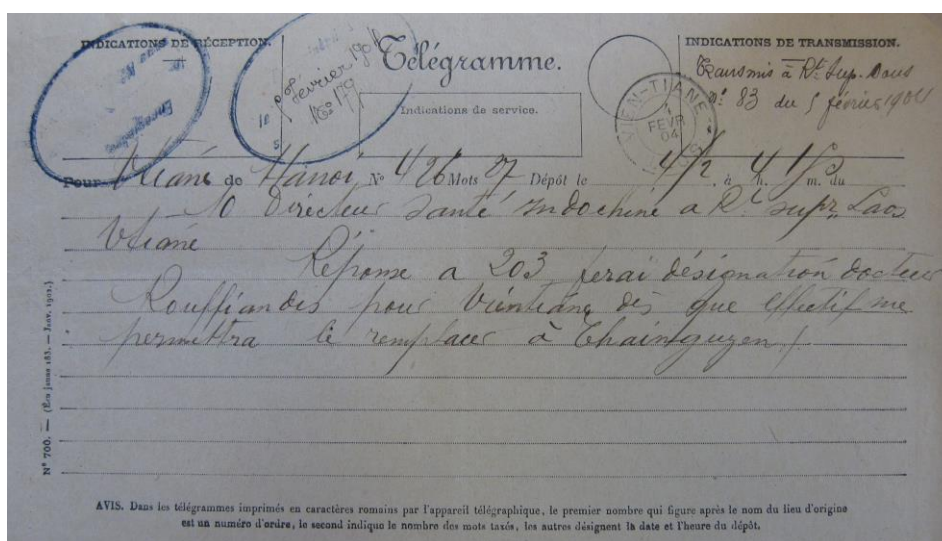 INDICATIONS DE RÉCEPTION.
Télégramme.
INDICATIONS DE TRANSMISSION.
Transmis à Rt. Sup. Laos
No. 83 du 5 février 1904
février 1904
No 179
Enregistrée
Indications de service.
VIEN-TIANE
4
FEVR
04
LAOS
Pour Vtiané de Hanoi, No 426 Mots 27 Dépôt le 4/2 à 4 h. 1/5 m. du
10 Directeur Santé Indochine a Rt. supr. Laos
Vtiané
Réponse a 203 ferai désignation docteur
Rouffiandis pour Vientiane dès que effectif me
permettra le remplacer à Thainguyen /.
No 700. — (Éco jaune 183. — Janv. 1902.)
AVIS. Dans les télégrammes imprimés en caractères romains par l'appareil télégraphique, le premier nombre qui figure après le nom du lieu d'origine
est un numéro d'ordre, le second indique le nombre des mots taxés, les autres désignent la date et l'heure du dépôt.